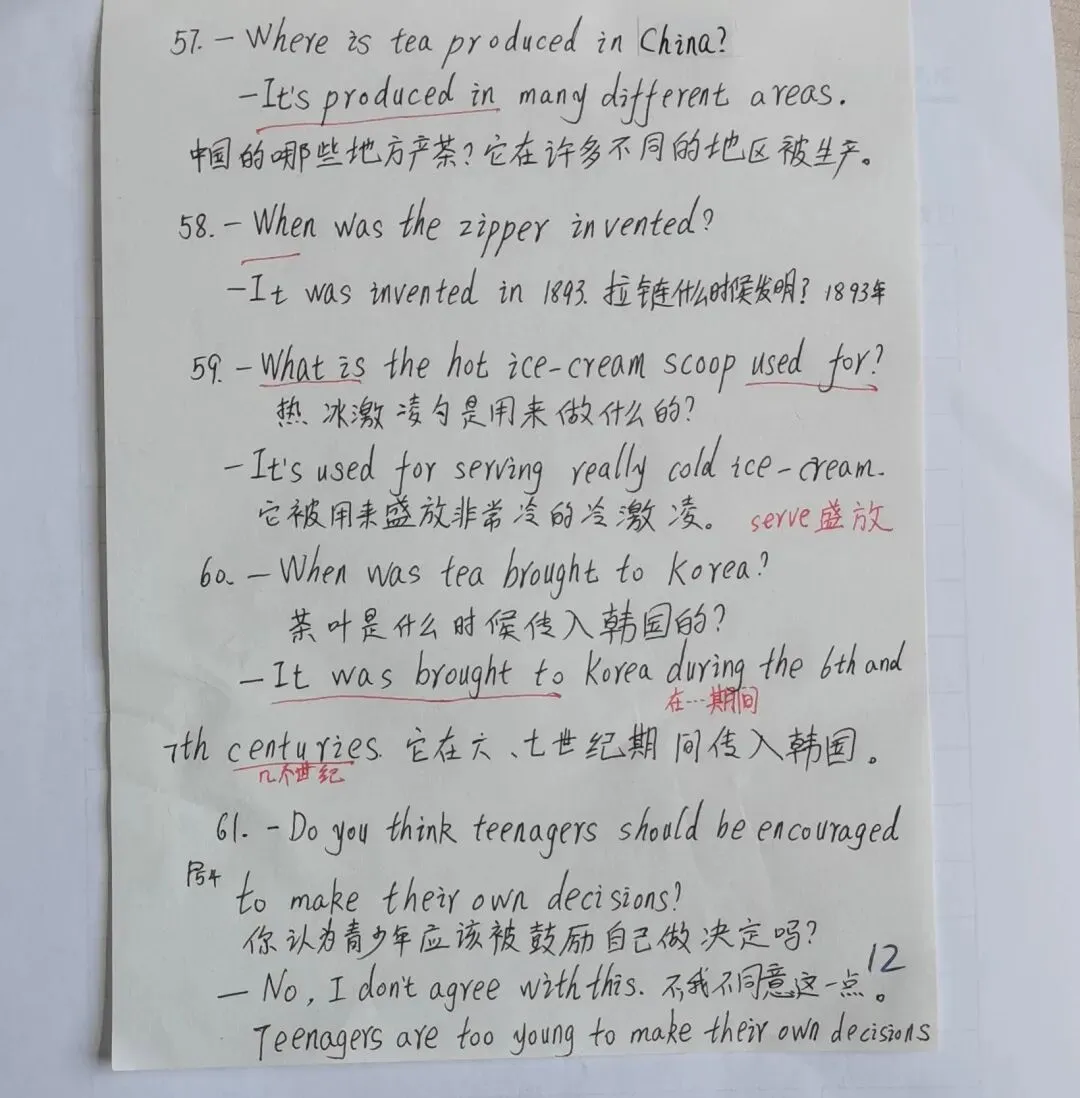 57. - Where is tea produced in China?
- It's produced in many different areas.
中国的哪些地方产茶？它在许多不同的地区被生产。
58. - When was the zipper invented?
- It was invented in 1893. 拉链什么时候发明？1893年
59. - What is the hot ice-cream scoop used for?
热冰激凌勺是用来做什么的？
- It's used for serving really cold ice-cream.
它被用来盛放非常冷的冷激凌。 serve 盛放
60. - When was tea brought to Korea?
茶叶是什么时候传入韩国的？
- It was brought to Korea during the 6th and
在…期间
7th centuries. 它在六、七世纪期间传入韩国。
几个世纪
61. - Do you think teenagers should be encouraged
to make their own decisions?
你认为青少年应该被鼓励自己做决定吗？
- No, I don't agree with this. 不，我不同意这一点。 12
Teenagers are too young to make their own decisions